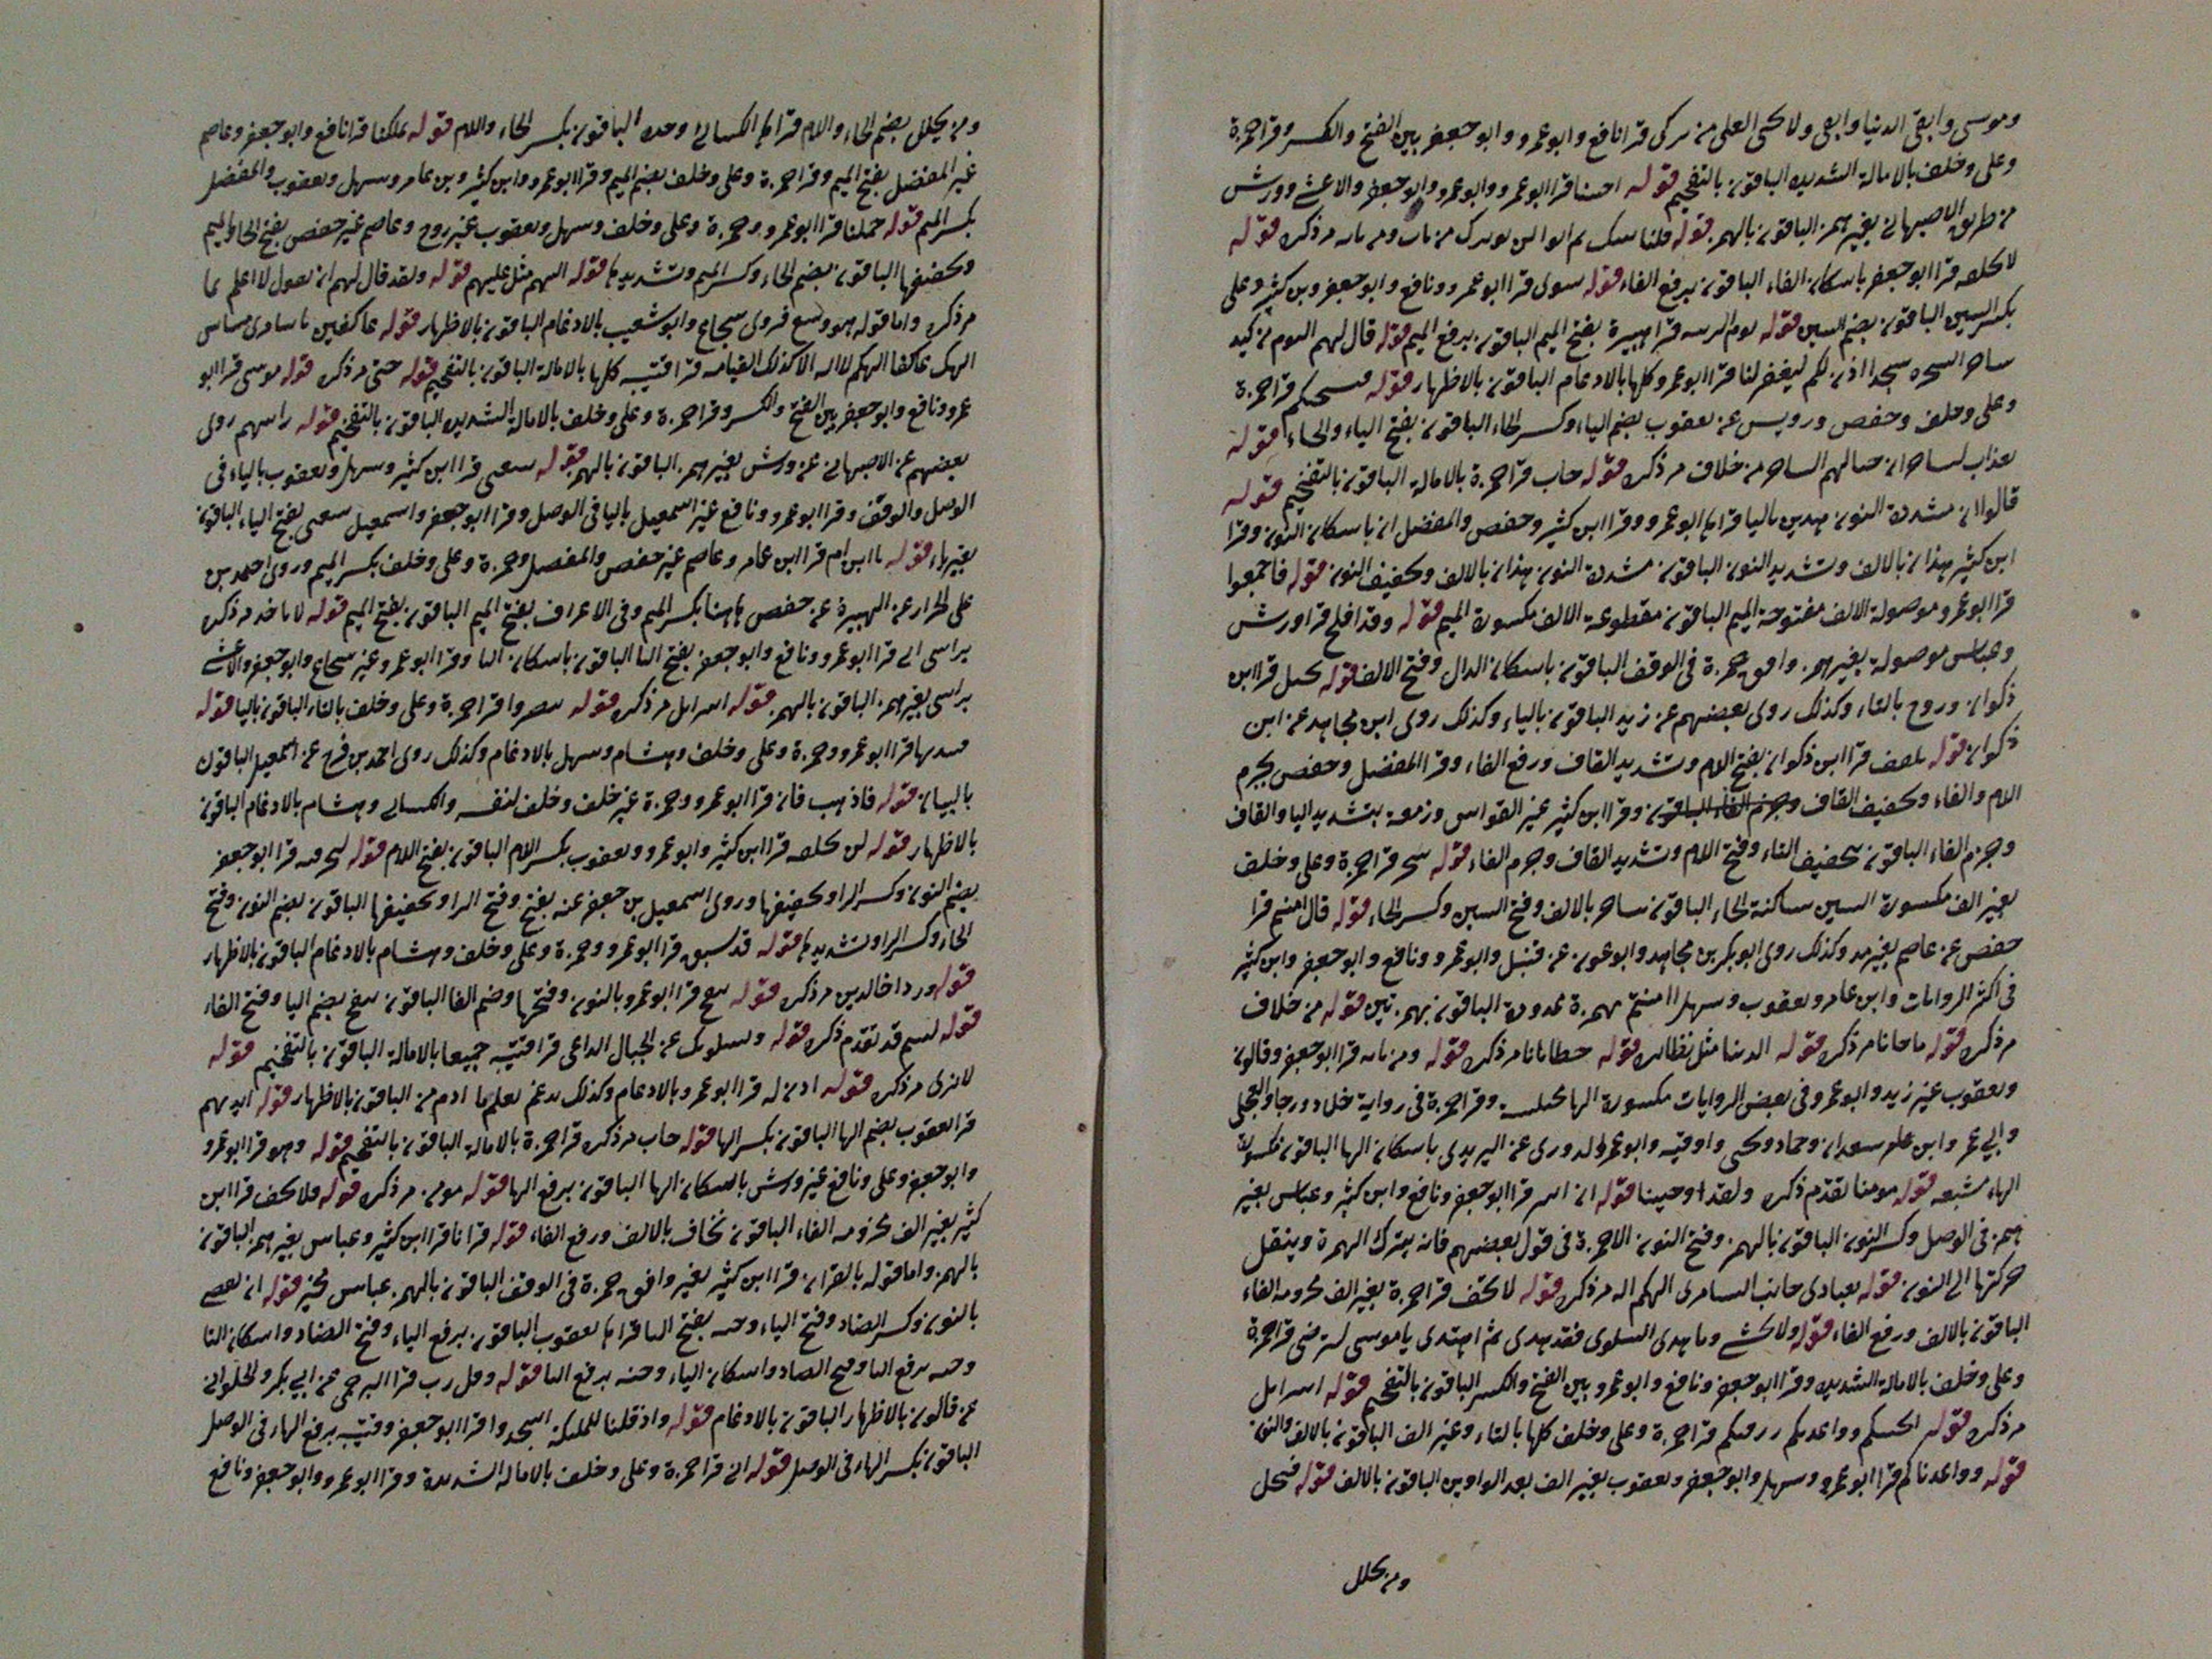 وموسى وابقى الدنيا وابقى ولا يحيى العلى من تزكى قرا نافع وابو عمرو وابو جعفر بين الفتح والكسر وقرا حمزة
وعلى وخلف بالامالة الشديدة الباقون بالتفخيم قوله اجئتنا قرا ابو عمرو وابو عمرو وابو جعفر والاعشى وورش
من طريق الاصبهانى بغير همز الباقون بالهمز قوله فلناتينك ثم مر ذكره قوله
لا نخلفه قرا ابو جعفر باسكان الفاء الباقون برفع الفاء قوله سوى قرا ابو عمرو ونافع وابو جعفر وبن كثير وعلى
بكسر السين الباقون بضم السين قوله يوم الزينة قرا هبيرة بفتح الميم الباقون برفع الميم قوله قال لهم اليوم من كيد
ساحر السحرة سجدا اذن لكم ليغفر لنا قرا ابو عمرو وكلها بالادغام الباقون بالاظهار قوله فيسحتكم قرا حمزة
وعلى وخلف وحفص ورويس عن يعقوب بضم الياء وكسر الحاء الباقون بفتح الياء والحاء قوله
بعذاب لساحران حبالهم الساحر من خلاف مر ذكره قوله خاب قرا حمزة بالامالة الباقون بالتفخيم قوله
قالوا ان مشددة النون هذين باليا قراها ابو عمرو وقرا ابن كثير وحفص والمفضل ان باسكان النون وقرا
ابن كثير هذان بالالف وتشديد النون الباقون مشددة النون هذان بالالف وتخفيف النون قوله فاجمعوا
قرا ابو عمرو موصولة الالف مفتوحة الميم الباقون مقطوعة الالف مكسورة الميم قوله وقد افلح قرا ورش
وعباس موصولة بغير همز وافق حمزة فى الوقف الباقون باسكان الدال وفتح الالف قوله يخيل قرا ابن
ذكوان وروح بالتاء وكذلك روى بعضهم عن زيد الباقون بالياء وكذلك روى ابن مجاهد عن ابن
ذكوان قوله تلقف قرا ابن ذكوان بفتح اللام وتشديد القاف ورفع الفاء وقرا المفضل وحفص بجزم
اللام والفاء وتخفيف القاف وجزم الفاء الباقون وقرا ابن كثير غير القواس وزمعة بتشديد اليا والقاف
وجزم الفاء الباقون بتخفيف التاء وفتح اللام وتشديد القاف وجزم الفاء قوله سحر قرا حمزة وعلى وخلف
بغير الف مكسورة السين ساكنة الحاء الباقون ساحر بالالف وفتح السين وكسر الحاء قوله قال امنتم قرا
حفص عن عاصم بغير مد وكذلك روى ابو بكر بن مجاهد وابو عون عن قنبل وابو عمرو ونافع وابو جعفر وابن كثير
فى اكثر الروايات وابن عامر ويعقوب وسهل اامنتم بهمزة ممدودة الباقون بهمزتين قوله من خلاف
مر ذكره قوله ما جانا مر ذكره قوله الدنيا مثل نظائره قوله خطايانا مر ذكره قوله ومن ياته قرا ابو جعفر وقالون
ويعقوب غير زيد وابو عمرو فى بعض الروايات مكسورة الها مختلسة وقرا حمزة فى رواية خلاد ورجا والعجلى
وابى عمر وابن سعدان وحماد ويحيى واوقيه وابو عمر والدورى عن اليزيدى باسكان الها الباقون مكسورة
الهاء مشبعة قوله مومنا تقدم ذكره ولقد اوحينا قوله ان اسر قرا ابو جعفر ونافع وابن كثير وعباس بغير
همز فى الوصل وكسر النون الباقون بالهمز وفتح النون الا حمزة فى قول بعضهم فانه يترك الهمزة وينقل
حركتها الى النون قوله بعبادى جانب السامرى الهكم اله مر ذكره قوله لا تخف قرا حمزة بغير الف مجزومه الفاء
الباقون بالالف ورفع الفاء قوله ولا تخشى وما هدى السلوى فقد هدى ثم اهتدى يا موسى لترضى قرا حمزة
وعلى وخلف بالامالة الشديدة وقرا ابو جعفر ونافع وابو عمرو بين الفتح والكسر الباقون بالتفخيم قوله اسرائيل
مر ذكره قوله انجيتكم وواعدتكم رزقتكم قرا حمزة وعلى وخلف كلها بالتاء وغير الف الباقون بالالف والنون
قوله وواعدناكم قرا ابو عمرو وسهل وابو جعفر ويعقوب بغير الف بعد الواوين الباقون بالالف قوله فيحل
ومن يحلل
ومن يحلل بضم الحاء واللام قراها الكسائى وحده الباقون بكسر الحاء واللام قوله بملكنا قرا نافع وابو جعفر وعاصم
غير المفضل بفتح الميم وقرا حمزة وعلى وخلف بضم الميم وقرا ابو عمرو وابن كثير وبن عامر وسهل ويعقوب والمفضل
بكسر الميم قوله حملنا قرا ابو عمرو وحمزة وعلى وخلف وسهل ويعقوب غير روح وعاصم غير حفص بفتح الحا والميم
وتخفيفها الباقون بضم الحاء وكسر الميم وتشديدها قوله اليهم مثل عليهم قوله ولقد قال لهم ان نقول لا اعلم بما
مر ذكره واما قوله هو وسع فروى شجاع وابو شعيب بالادغام الباقون بالاظهار قوله عاكفين يا سامرى مساس
الهك عاكفا الهكم لا اله الا كذلك القيامه قرا قتيبه كلها بالامالة الباقون بالتفخيم قوله حتى مر ذكره قوله موسى قرا ابو
عمرو ونافع وابو جعفر بين الفتح والكسر وقرا حمزة وعلى وخلف بالامالة الشديدة الباقون بالتفخيم قوله راسهم روى
بعضهم عن الاصبهانى عن ورش بغير همز الباقون بالهمز قوله تتبعنى قرا ابن كثير وسهل ويعقوب بالياء فى
الوصل والوقف وقرا ابو عمرو ونافع غير اسمعيل باليا فى الوصل وقرا ابو جعفر واسمعيل تتبعنى بفتح الياء الباقون
بغير ياء قوله يا ابن ام قرا ابن عامر وعاصم غير حفص والمفضل وحمزة وعلى وخلف بكسر الميم وروى احمد بن
على الخزاز عن الهبيرة عن حفص هاهنا بكسر الميم وفى الاعراف بفتح الميم الباقون بفتح الميم قوله لا تاخذ مر ذكره
براسى انى قرا ابو عمرو ونافع وابو جعفر بفتح اليا الباقون باسكان اليا وقرا ابو عمرو غير شجاع وابو جعفر والاعشى
براسى بغير همز الباقون بالهمز قوله اسرائيل مر ذكره قوله تبصروا قرا حمزة وعلى وخلف بالتاء الباقون باليا قوله
فنبذتها قرا ابو عمرو وحمزة وعلى وخلف وهشام وسهل بالادغام وكذلك روى احمد بن فرح عن اسمعيل الباقون
بالبيان قوله فاذهب فان قرا ابو عمرو وحمزة غير خلف وخلف لنفسه والكسائى وهشام بالادغام الباقون
بالاظهار قوله لن تخلفه قرا ابن كثير وابو عمرو ويعقوب بكسر اللام الباقون بفتح اللام قوله لنحرقنه قرا ابو جعفر
بضم النون وكسر الرا وتخفيفها وروى اسمعيل بن جعفر عنه بفتح وفتح الرا وتخفيفها الباقون بضم النون وفتح
الحاء وكسر الرا وتشديدها قوله قد سبق قرا ابو عمرو وحمزة وعلى وخلف وهشام بالادغام الباقون بالاظهار
قوله وزدا خالدين مر ذكره قوله ينفخ قرا ابو عمرو بالنون وفتحها وضم الفا الباقون ينفخ بضم اليا وفتح الفاء
قوله لبثتم قد تقدم ذكره قوله ويسئلونك عن الجبال الداعى قرا قتيبه جميعا بالامالة الباقون بالتفخيم قوله
لا ترى مر ذكره قوله اذن له قرا ابو عمرو بالادغام وكذلك يدغم يعلم ما ادم من الباقون بالاظهار قوله ايديهم
قرا يعقوب بضم الها الباقون بكسر الها قوله خاب مر ذكره قرا حمزة بالامالة الباقون بالتفخيم قوله وهو قرا ابو عمرو
وابو جعفر وعلى ونافع غير ورش باسكان الها الباقون برفع الها قوله مومن مر ذكره قوله فلا يخف قرا ابن
كثير بغير الف مجزومه الفاء الباقون يخاف بالالف ورفع الفاء قوله قرانا قرا ابن كثير وعباس بغير همز الباقون
بالهمز واما قوله بالقران قرا ابن كثير بغير وافق حمزة فى الوقف الباقون بالهمز عباس مخير قوله ان نقضى
بالنون وكسر الضاد وفتح الياء وحيه بفتح اليا قراها يعقوب الباقون برفع الياء وفتح الضاد واسكان اليا
وحيه برفع اليا وفتح الضاد واسكان الياء وحيه برفع اليا قوله وقل رب قرا البرجمى عن ابى بكر والحلوانى
عن قالون بالاظهار الباقون بالادغام قوله واذ قلنا للملئكة اسجدوا قرا ابو جعفر وقتيبه برفع الهاء فى الوصل
الباقون بكسر الهاء فى الوصل قوله ابى قرا حمزة وعلى وخلف بالاماله الشديدة وقرا ابو عمرو وابو جعفر ونافع